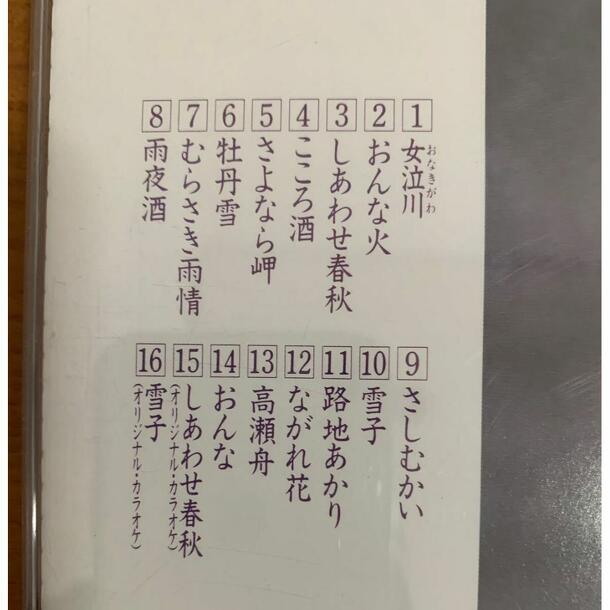 1 女泣川
おなきがわ
2 おんな火
3 しあわせ春秋
4 こころ酒
5 さよなら岬
6 牡丹雪
7 むらさき雨情
8 雨夜酒
9 さしむかい
10 雪子
11 路地あかり
12 ながれ花
13 高瀬舟
14 おんな
15 しあわせ春秋
(オリジナル・カラオケ)
16 雪子
(オリジナル・カラオケ)